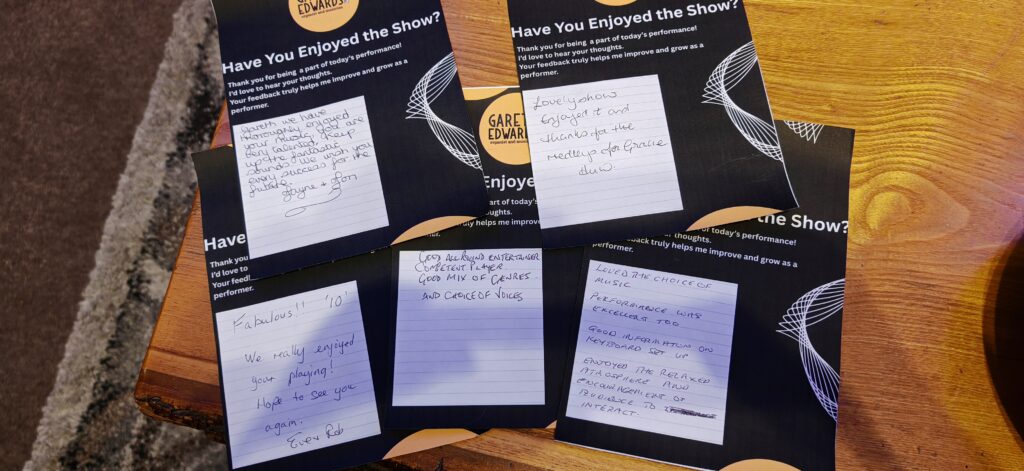 GARETH
EDWARDS
organist and musician
Have You Enjoyed the Show?
Thank you for being a part of today's performance!
I'd love to hear your thoughts.
Your feedback truly helps me improve and grow as a
performer.
Gareth we have
thoroughly enjoyed
your music, you are
very talented. Keep
up the fantastic
sounds. We wish you
every success for the
future.
Jayne + Ron
Have You Enjoyed the Show?
Thank you for being a part of today's performance!
I'd love to hear your thoughts.
Your feedback truly helps me improve and grow as a
performer.
Lovely show
Enjoyed it and
thanks for the
Medleys of
GARETH
EDWARDS
organist and musician
Enjoyed
part of today's
thoughts.
truly helps me improve
GOOD ALL ROUND ENTERTAINER
COMPETENT PLAYER
GOOD MIX OF GENRES
AND CHOICE OF VOICES
Have
Thank you
I'd love to
Your
performer.
Fabulous!! '10'
We really enjoyed
your playing!
Hope to see you
again.
Rob
the Show?
of today's performance!
feedback truly helps me improve and grow as a
performer.
LOVED THE CHOICE OF
MUSIC
PERFORMANCE WAS
EXCELLENT TOO
GOOD INFORMATION ON
KEYBOARD SET UP
ENJOYED THE RELAXED
ATMOSPHERE AND
ENCOURAGEMENT OF
AUDIENCE TO
INTERACT.